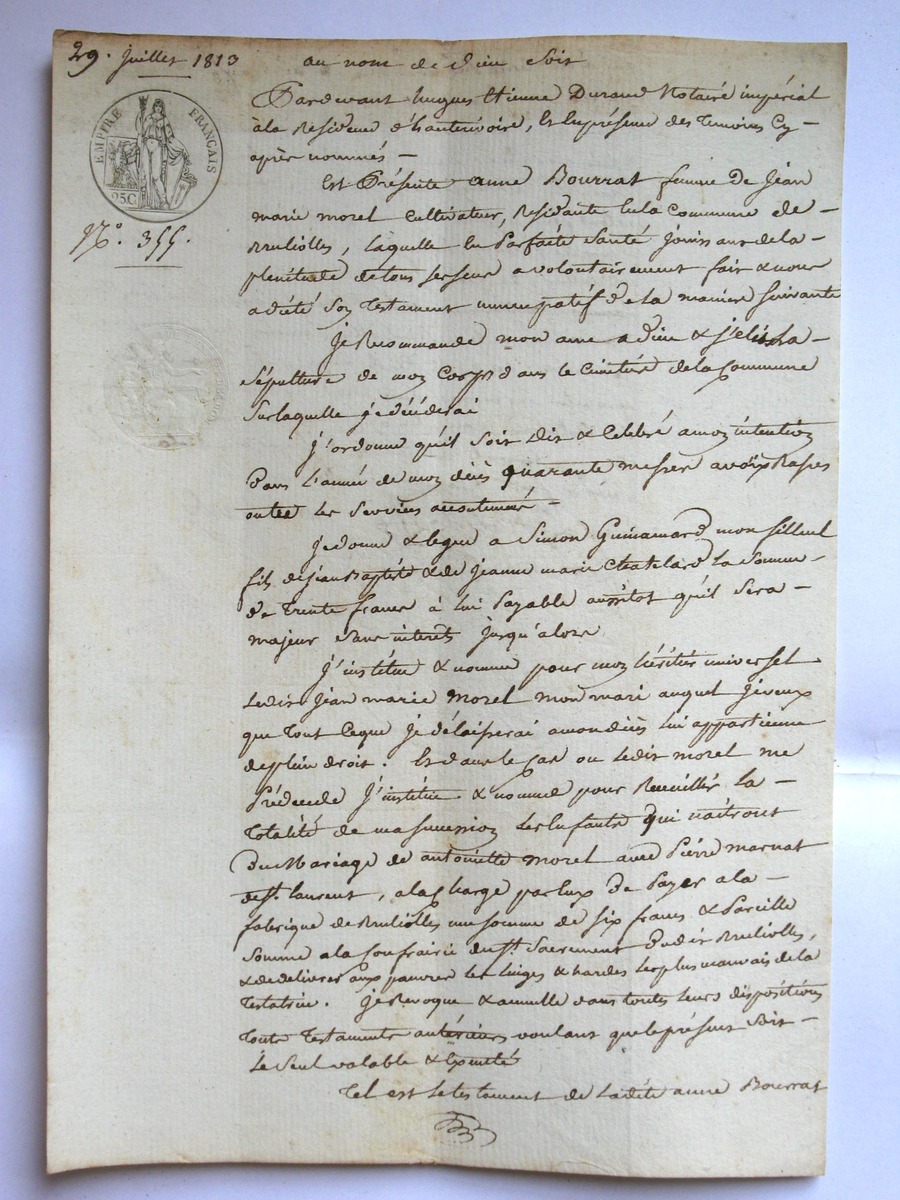 29. juillet 1813
au nom de dieu soit
EMPIRE FRANÇAIS
25C.
N.o 355.
Pardevant hugues Etienne Durand Notaire impérial
à la Residence d'hauterivoire, En la présence des Temoins Cy-
après nommés —
Est Présente anne Bourrat femme De Jean
marie morel Cultivateur, Residante En la Commune de —
Brulliolles, laquelle En Parfaite Santé jouissant de la —
plénitude de tous ses sens a volontairement fait & nous
a dicté Son Testament nuncupatif de la manière Suivante
Je Recommande mon ame a dieu & j'élis la —
Sépulture de mon Corps dans le Cimetière de la Commune
Sur laquelle je décéderai
J'ordonne qu'il soit dit & Celébré a mon intention
Dans l'année de mon décès quarante messes a voix Basse
outre les Services accoutumés —
Je donne & legue a Simon Guinamard mon filleul
fils de jean Baptiste & de Jeanne marie Chatelard la Somme
de Trente francs à lui Payable aussitot qu'il Sera —
majeur Sans interets jusqu'alors
J'institue & nomme pour mon héritier universel
Ledit Jean marie Morel mon mari auquel je veux
que Tout Ceque je délaisserai a mon décès lui appartienne
de plein droit. Et dans le Cas ou ledit morel me
Prédécede J'institue & nomme pour Recueillir la —
Totalité de ma succession les Enfants qui naitront
Du Mariage de antoinette Morel avec Pierre marnat
de St. laurent, a la Charge par Eux de Payer a la —
fabrique de Brulliolles une somme de six francs & Pareille
Somme a la Confrairie du St. Sacrement dudit Brulliolles,
& de delivrer aux pauvres les linges & hardes les plus mauvais de la
Testatrice. Je Révoque & annulle dans toutes leurs dispositions
Touts Testaments antérieurs voulant que le présent Soit —
Le Seul valable & Exécuté
Tel est le testament de Ladite anne Bourrat